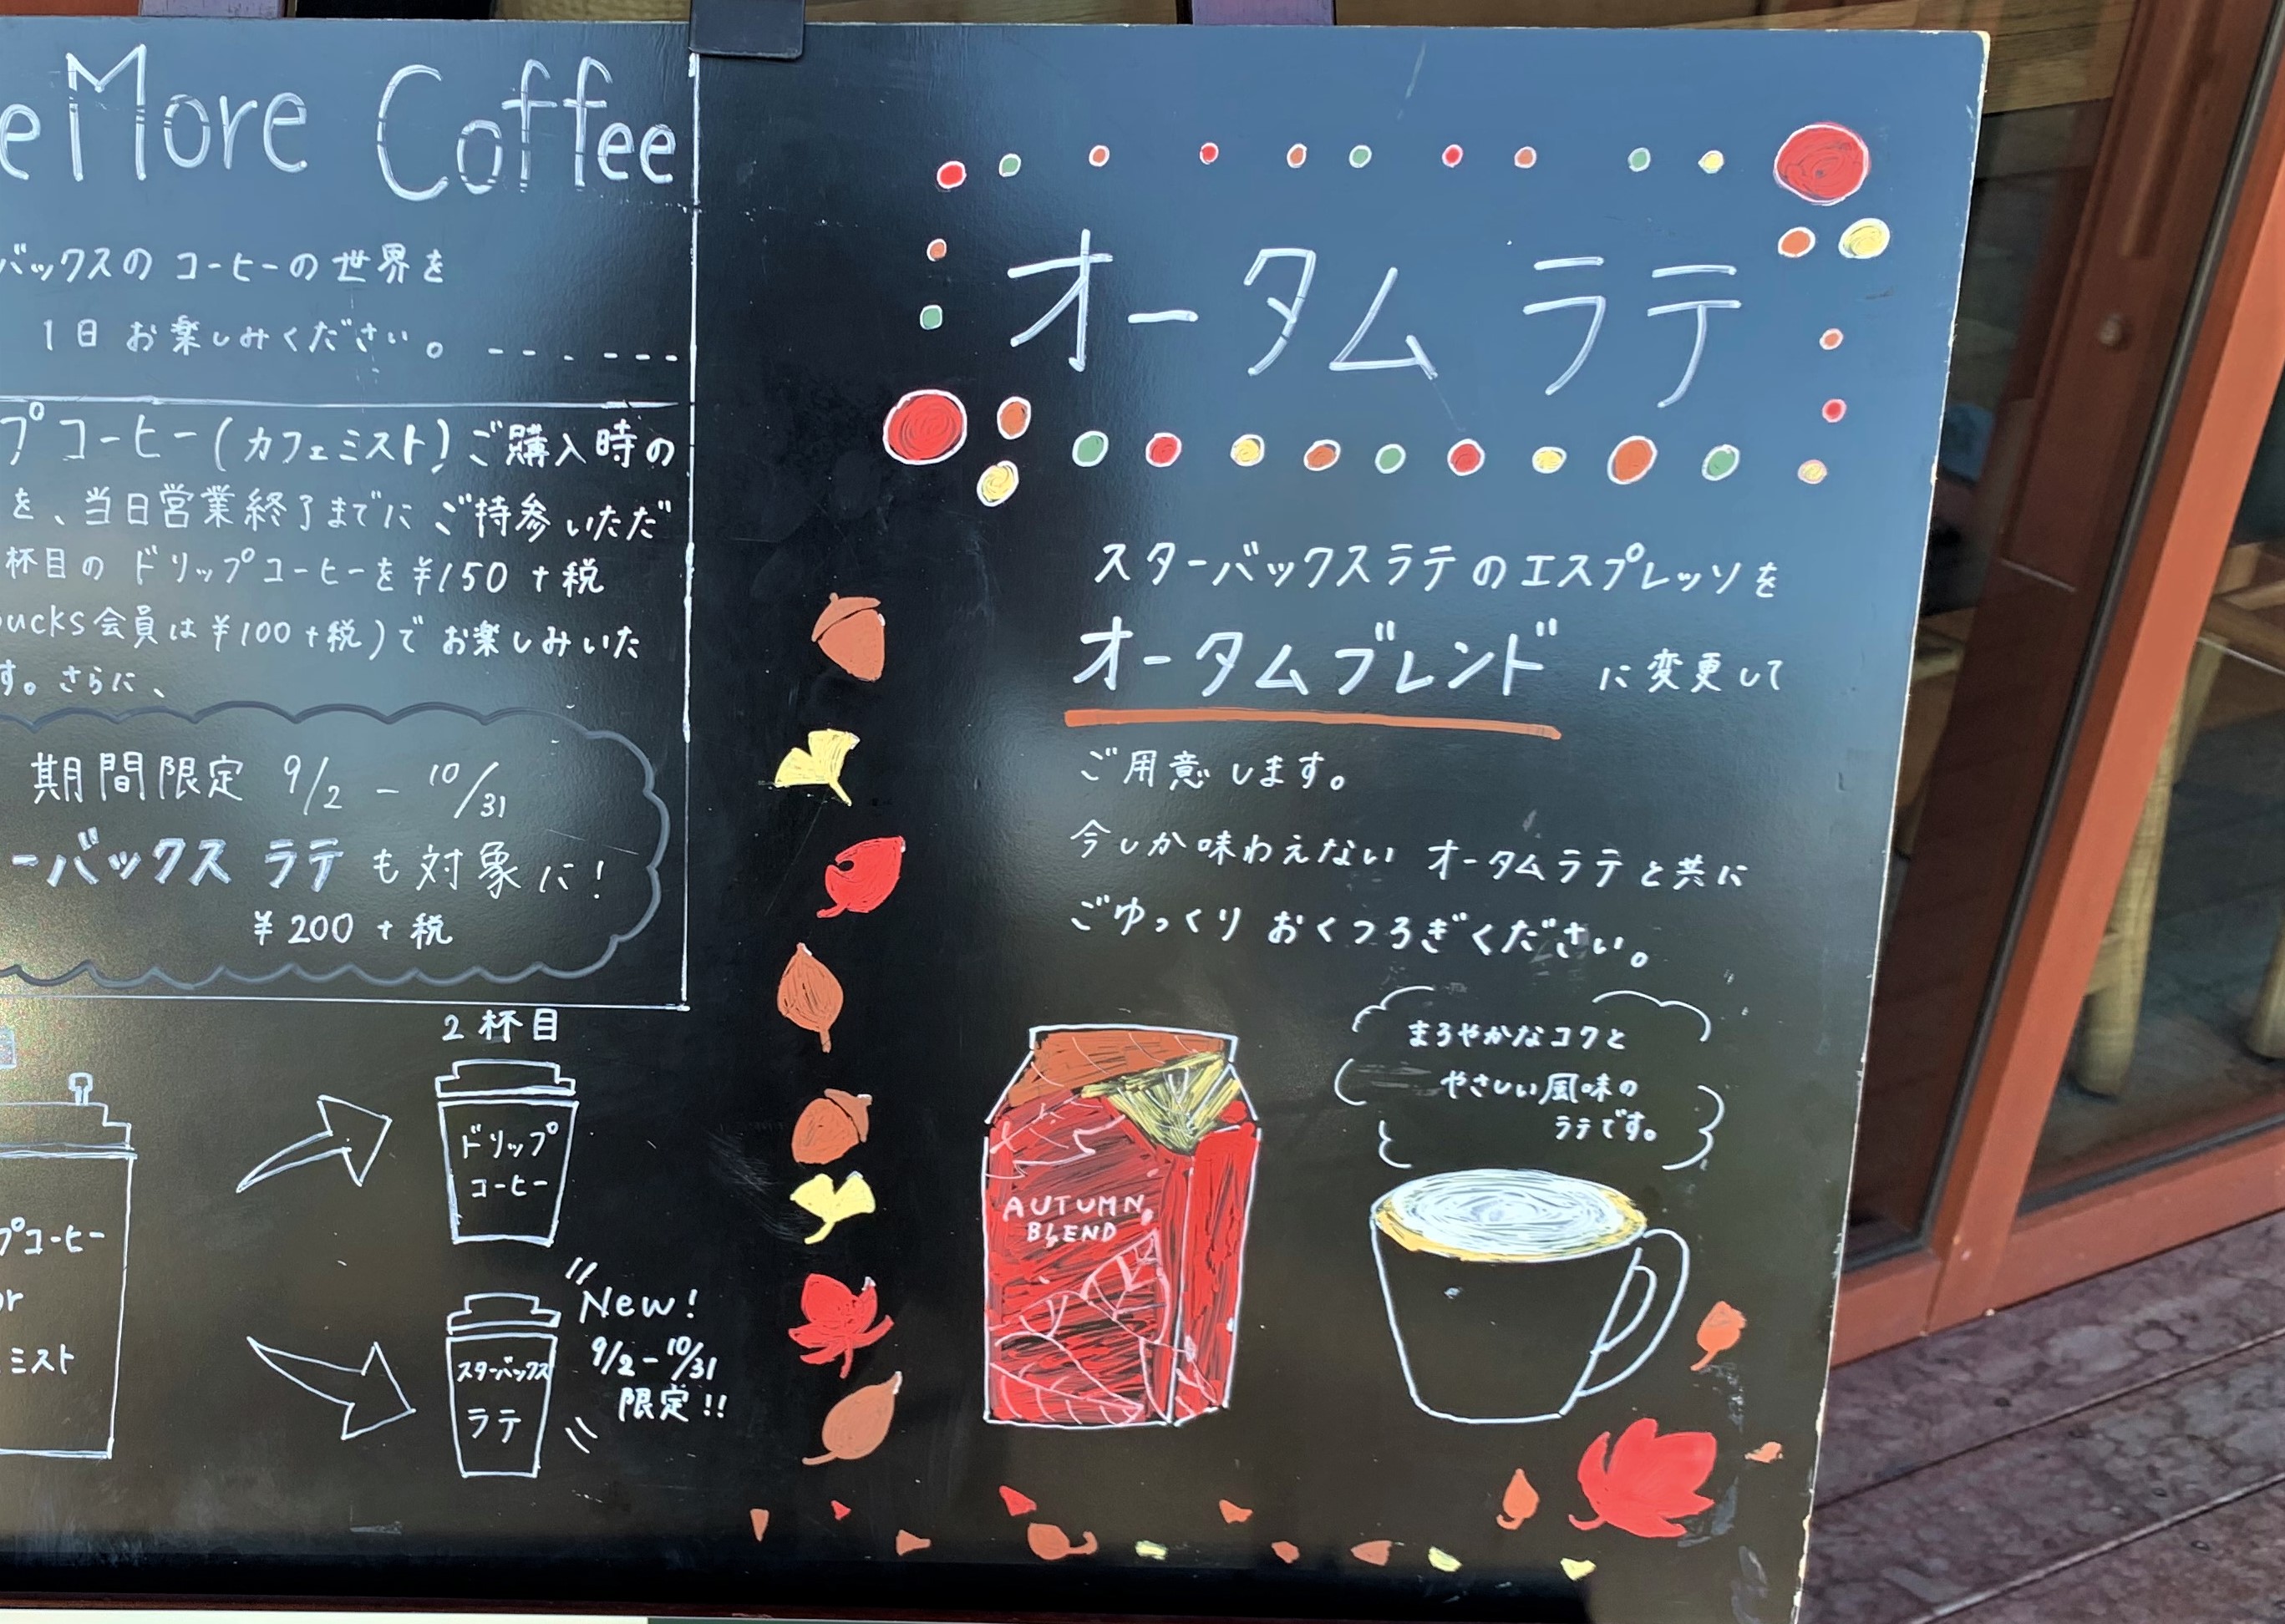 e More Coffee
バックスの コーヒーの 世界を
1日 お楽しみください。
プコーヒー(カフェミスト)ご購入時の
を、当日営業終了までに ご持参いただ
杯目の ドリップコーヒーを ¥150 + 税
bucks会員は ¥100 +税)で お楽しみいた
す。さらに、
期間限定 9/2 - 10/31
ーバックス ラテ も対象に!
¥200 + 税
2杯目
ドリップ
コーヒー
プコーヒー
or
ミスト
New!
9/2-10/31
限定!!
スターバックス
ラテ
オータム ラテ
スターバックスラテのエスプレッソを
オータムブレンド に変更して
ご用意します。
今しか味わえない オータムラテと共に
ごゆっくり おくつろぎください。
まろやかなコクと
やさしい風味の
ラテです。
AUTUMN
BLEND